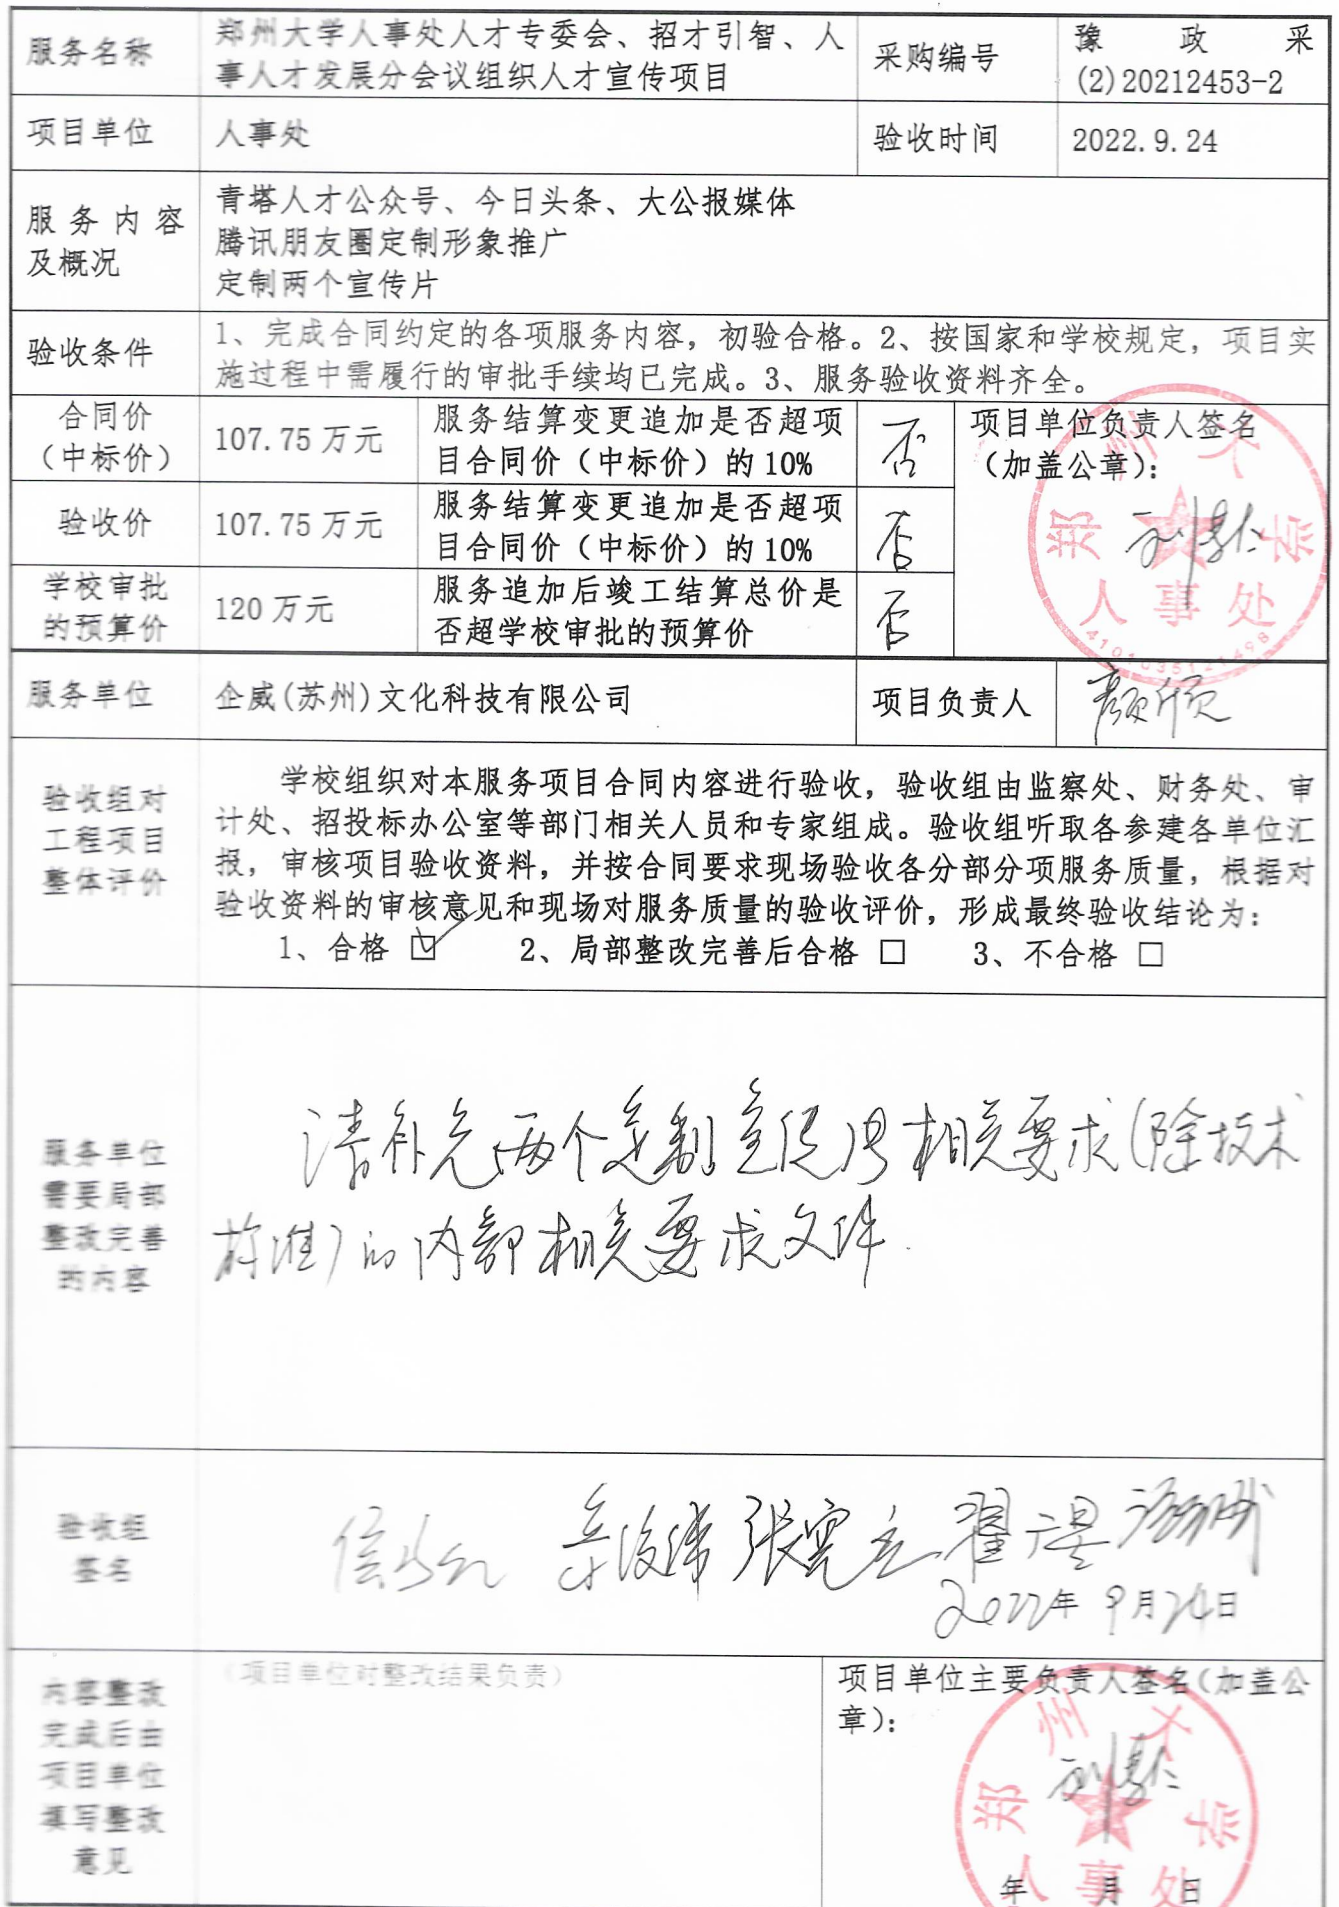 服务名称
郑州大学人事处人才专委会、招才引智、人
事人才发展分会议组织人才宣传项目
采购编号
豫 政 采
(2)20212453-2
项目单位
人事处
验收时间
2022.9.24
服务内容
及概况
青塔人才公众号、今日头条、大公报媒体
腾讯朋友圈定制形象推广
定制两个宣传片
验收条件
1、完成合同约定的各项服务内容，初验合格。2、按国家和学校规定，项目实
施过程中需履行的审批手续均已完成。3、服务验收资料齐全。
合同价
（中标价）
107.75万元
服务结算变更追加是否超项
目合同价（中标价）的10%
否
项目单位负责人签名
（加盖公章）：
郑州大学
人事处
验收价
107.75万元
服务结算变更追加是否超项
目合同价（中标价）的10%
否
学校审批
的预算价
120万元
服务追加后竣工结算总价是
否超学校审批的预算价
否
服务单位
企威(苏州)文化科技有限公司
项目负责人
验收组对
工程项目
整体评价
学校组织对本服务项目合同内容进行验收，验收组由监察处、财务处、审
计处、招投标办公室等部门相关人员和专家组成。验收组听取各参建各单位汇
报，审核项目验收资料，并按合同要求现场验收各分部分项服务质量，根据对
验收资料的审核意见和现场对服务质量的验收评价，形成最终验收结论为：
1、合格 ☑ 2、局部整改完善后合格 □ 3、不合格 □
服务单位
需要局部
整改完善
的内容
请补充两个定制宣传片相关要求(除技术
标准)的内部相关要求文件.
验收组
签名
2022年9月24日
内容整改
完成后由
项目单位
填写整改
意见
（项目单位对整改结果负责）
项目单位主要负责人签名（加盖公
章）：
郑州大学
人事处
年 月 日